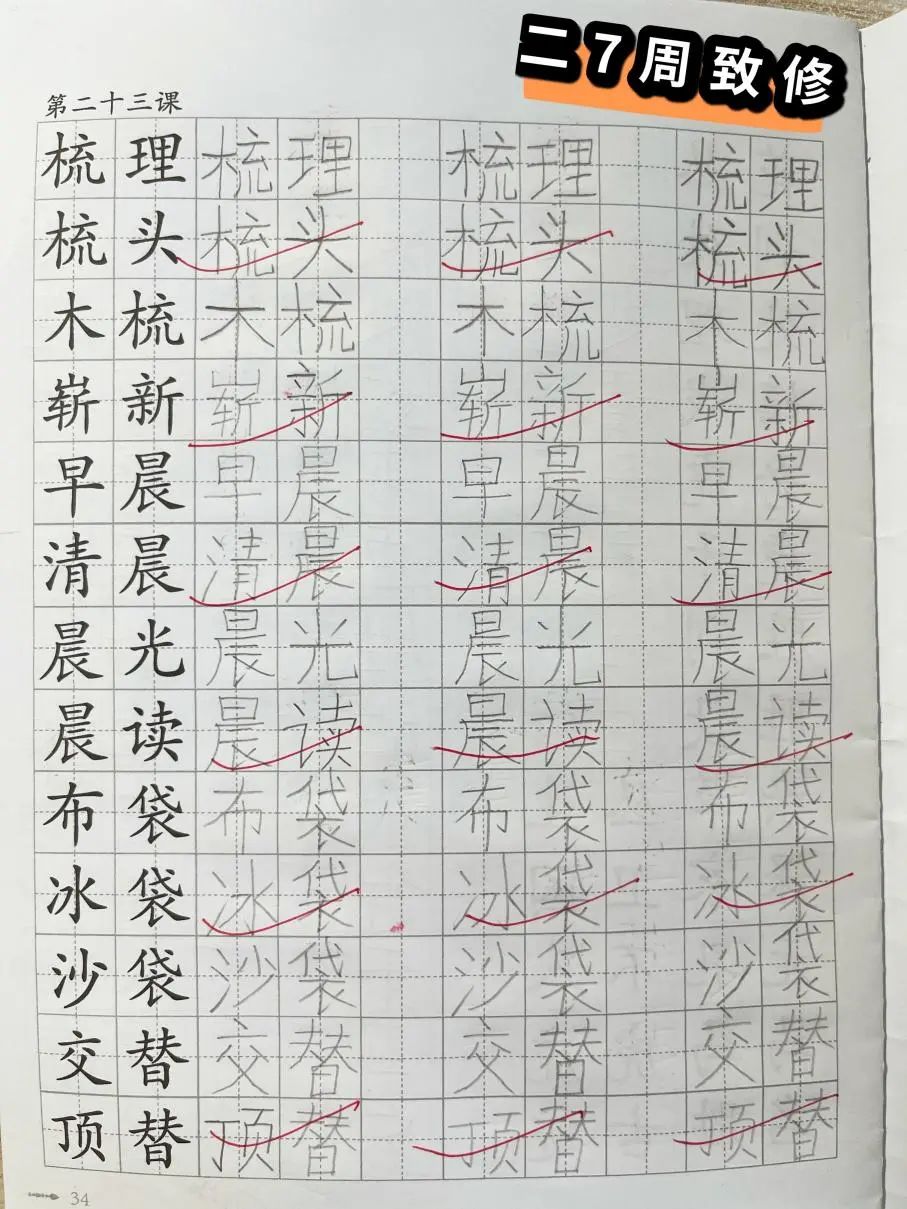 二7周致修
第二十三课
梳理梳理梳理梳理
梳头梳头梳头梳头
木梳木梳木梳木梳
崭新崭新崭新崭新
早晨早晨早晨早晨
清晨清晨清晨清晨
晨光晨光晨光晨光
晨读晨读晨读晨读
布袋布袋布袋布袋
冰袋冰袋冰袋冰袋
沙袋沙袋沙袋沙袋
交替交替交替交替
顶替顶替顶替顶替
34